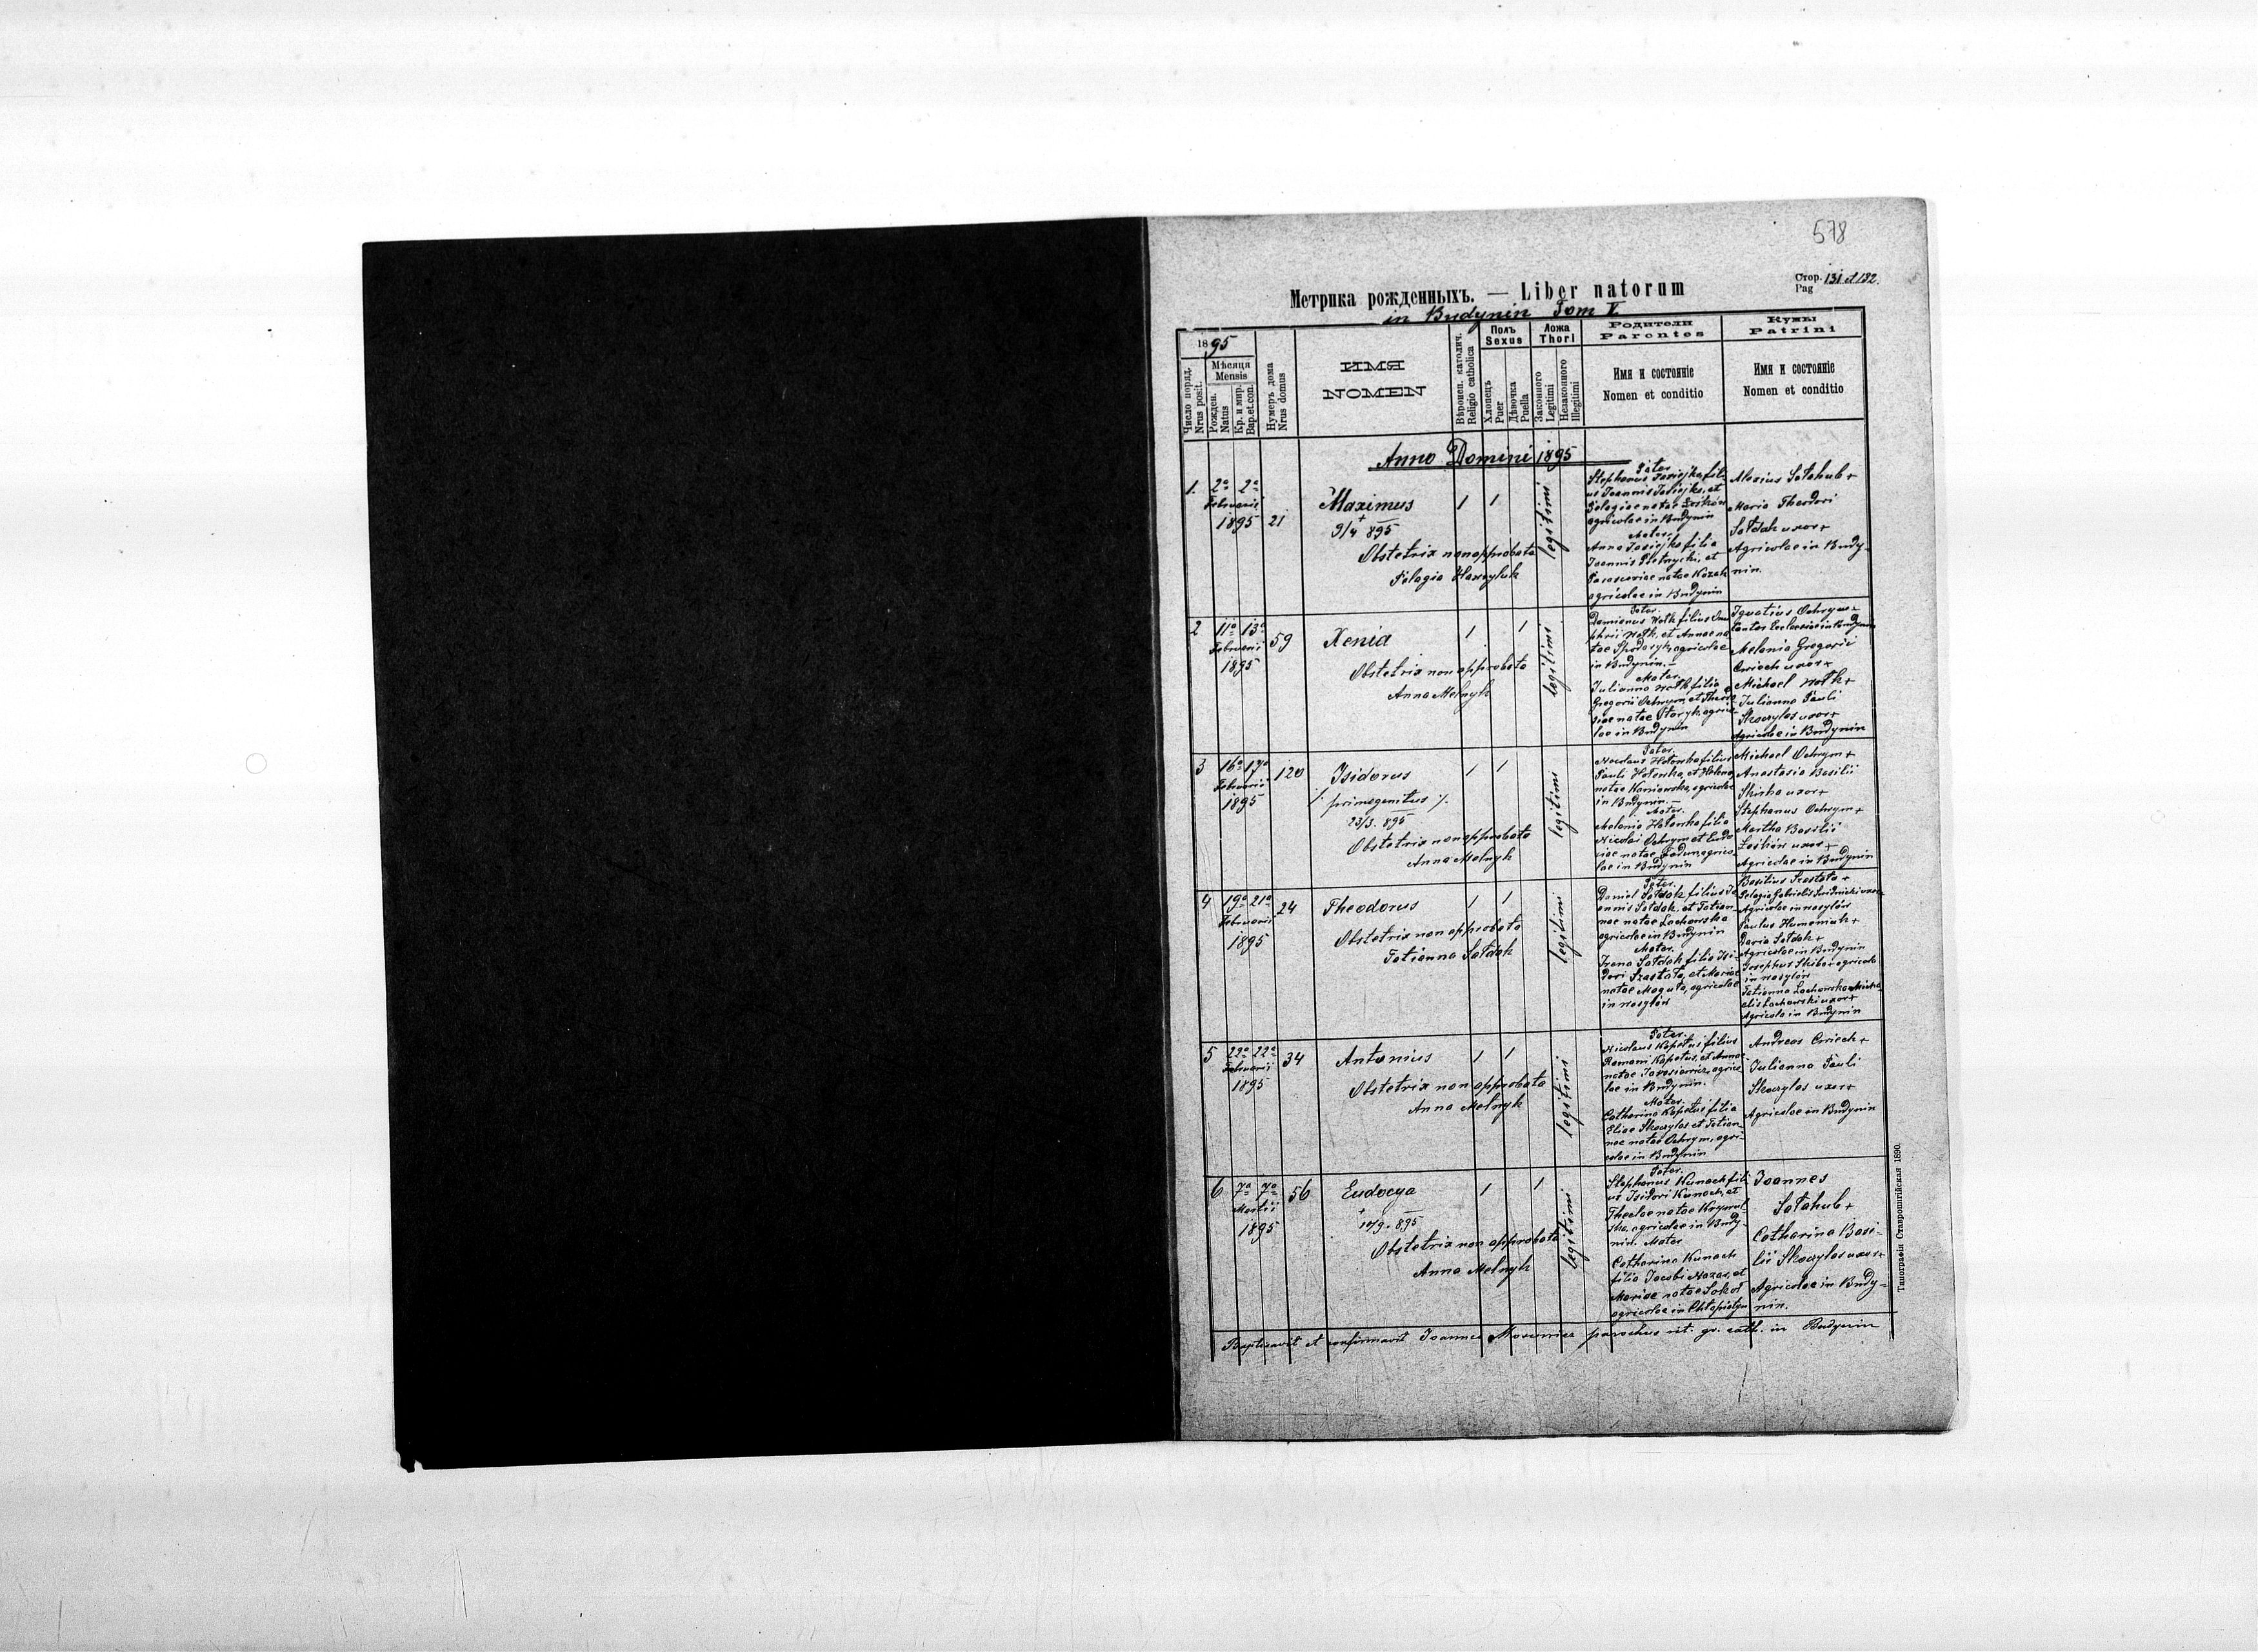 578
Стор. 131 et 132.
Pag
Метрика рожденныхъ. — Liber natorum
in Budynin Tom V.
1895
Число поряд.
Nrus posit.
Мѣсяця
Mensis
Рожден.
Natus
Кр. и мир.
Bap. et con.
Нумеръ дома
Nrus domus
ИМЯ
NOMEN
Вѣроисп. католич.
Religio catholica
Полъ
Sexus
Хлопецъ
Puer
Дѣвочка
Puella
Ложа
Thori
Законного
Legitimi
Незаконного
Illegitimi
Родители
Parentes
Имя и состояніе
Nomen et conditio
Кумы
Patrini
Имя и состояніе
Nomen et conditio
Anno Domini 1895
1. 2a 2a
Februarii
1895 21
Maximus
+
9/4 895
Obstetrix non approbata
Pelagia
1 1
legitimi
Pater
Stephanus
us Joannis et
Pelagiae natae
agricolae in Budynin
Mater
Anna filia
Joannis et
Parasceviae natae Kozak
agricolae in Budynin
Alexius Sołahub +
Maria Theodori
Sołdak uxor +
Agricolae in Budy-
nin.
2 11a 13a 59
Februarii
1895
Xenia
Obstetrix non approbata
Anna Melnyk
1 1
legitimi
Pater.
Damianus filius Onu-
phrii et Annae na-
tae agricolae
in Budynin. —
Mater.
Julianna filia
Gregorii Ochrym, et
siae natae agrico-
lae in Budynin
Ignatius Ochrym +
Cantor Ecclesiae in Budynin
Melania Gregorii
uxor +
Michael
Julianna Pauli
Skoczylas uxor +
Agricolae in Budynin
3 16a 17a 120
Februarii
1895
Isidorus
/: primogenitus :/.
23/3. 895
Obstetrix non approbata
Anna Melnyk
1 1
legitimi
Pater.
Nicolaus filius
Pauli et Helena
natae agricolae
in Budynin. —
Mater.
Melania filia
Nicolai Ochrym et Eudo-
ciae natae agrico-
lae in Budynin
Michael Ochrym +
Anastasia Basilii
uxor +
Stephanus Ochrym +
Martha Basilii
uxor +
Agricolae in Budynin
4 19a 21a 24
Februarii
1895
Theodorus
Obstetrix non approbata
Tatianna Sołdak
1 1
legitimi
Pater.
Daniel Sołdak filius Jo-
annis Sołdak, et Tatian-
nae natae Lachowska
agricolae in Budynin
Mater.
Irena Sołdak filia Isi-
dori Szastała, et Mariae
natae agricolae
in
Basilius Szastała +
Pelagia Gabrielis uxor
Agricolae in
Paulus Humeniuk +
Daria Sołdak +
Agricolae in Budynin
Josephus Skiba agricola
in
Tatianna Lachowska Micha-
elis Lachowski uxor +
Agricola in Budynin
5 22a 22a 34
Februarii
1895
Antonius
Obstetrix non approbata
Anna Melnyk
1 1
legitimi
Pater.
Nicolaus Kapetus filius
Romani Kapetus, et Annae
natae agrico-
lae in Budynin.
Mater.
Catharina Kapetus filia
Eliae Skoczylas et Tatian-
nae natae Ochrym, agri-
colae in Budynin
Andreas +
Julianna Pauli
Skoczylas uxor +
Agricolae in Budynin
6 7a 7a 56
Martii
1895
Eudocya
+
10/9. 895
Obstetrix non approbata
Anna Melnyk
1 1
legitimi
Pater.
Stephanus Kunach fili-
us Isidori Kunach, et
Theclae natae
agricolae in Budy-
nin. Mater
Catharina Kunach
filia Jacobi Nazar, et
Mariae natae Sokoł
agricolae in
Joannes
Sołahub +
Catharina Basi-
lii Skoczylas uxor +
Agricolae in Budy-
nin.
Baptisavit et confirmavit Joannes parochus rit. gr. cath. in Budynin
Типографія Ставропигійская 1890.